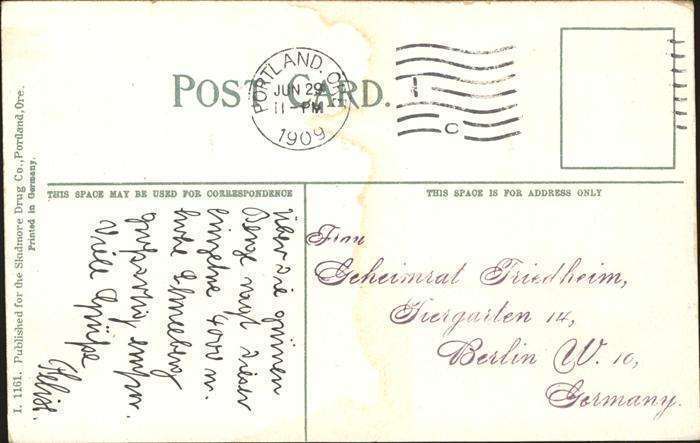 POST CARD.
PORTLAND, O
JUN 29
11-PM
1909
C
THIS SPACE MAY BE USED FOR CORRESPONDENCE
THIS SPACE IS FOR ADDRESS ONLY
I. 1161. Published for the Skidmore Drug Co., Portland, Ore.
Printed in Germany.
über die grünen
Berge ragt dieser
einzelne 4000 m.
hohe Schneeberg
großartig empor.
Viele Grüße
Frau
Geheimrat Friedheim,
Tiergarten 14,
Berlin W. 10,
Germany.